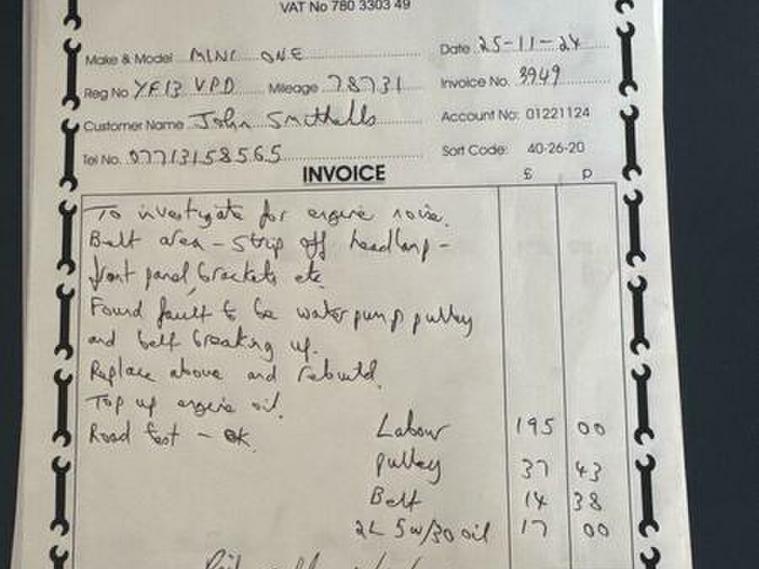 VAT No 780 3303 49
Make & Model MINI ONE Date 25-11-24
Reg No YF13 VPD Mileage 78731 Invoice No. 3949
Customer Name John Smithells Account No: 01221124
Tel No. 07713158565 Sort Code: 40-26-20
INVOICE £ p
To investigate for engine noise.
Belt area - strip off headlamp -
front panel, brackets etc
Found fault to be water pump pulley
and belt breaking up.
Replace above and rebuild.
Top up engine oil.
Road test - ok. Labour 195 00
pulley 37 43
Belt 14 38
2L 5w/30 oil 17 00